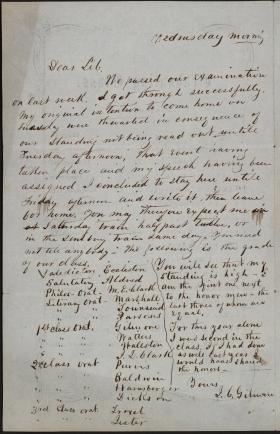 Wednesday morning
Dear Lib,
We passed our Examination
on last week. I got through successfully.
My original intention to come home on
Tuesday were thwarted in consequence of
our Standing not being read out until
Tuesday afternoon, That event having
taken place and my speech having been
assigned I concluded to stay here until
Friday afternoon and write it, then leave
for home. You may therefore expect me
at Saturday train half past twelve, or
in the evening train same day. You need
not tell anybody. The following is the grade
of our class.
Valedictory Eccleston
Salutatory Aldred
Philos. Orat. M. C. Clark
Literary Orat. Marshall
" " Townsend
" " Parsons
1st Class Orat. Gilmore
" " Watters
" " Haleston
" " J. D. Clark
2nd Class Orat Purvis
" " Baldwin
" " Harnsberger
" " Dickson
3rd Class Orat
" " Lester
You will see that my
standing is high - I
am the first one next
to the honor men - the
last three of whom are
equal.
For this year alone
I was second in the
class, If I had done
as well last year I
would have shared
the honors.
Yours
J. C. Gilmore